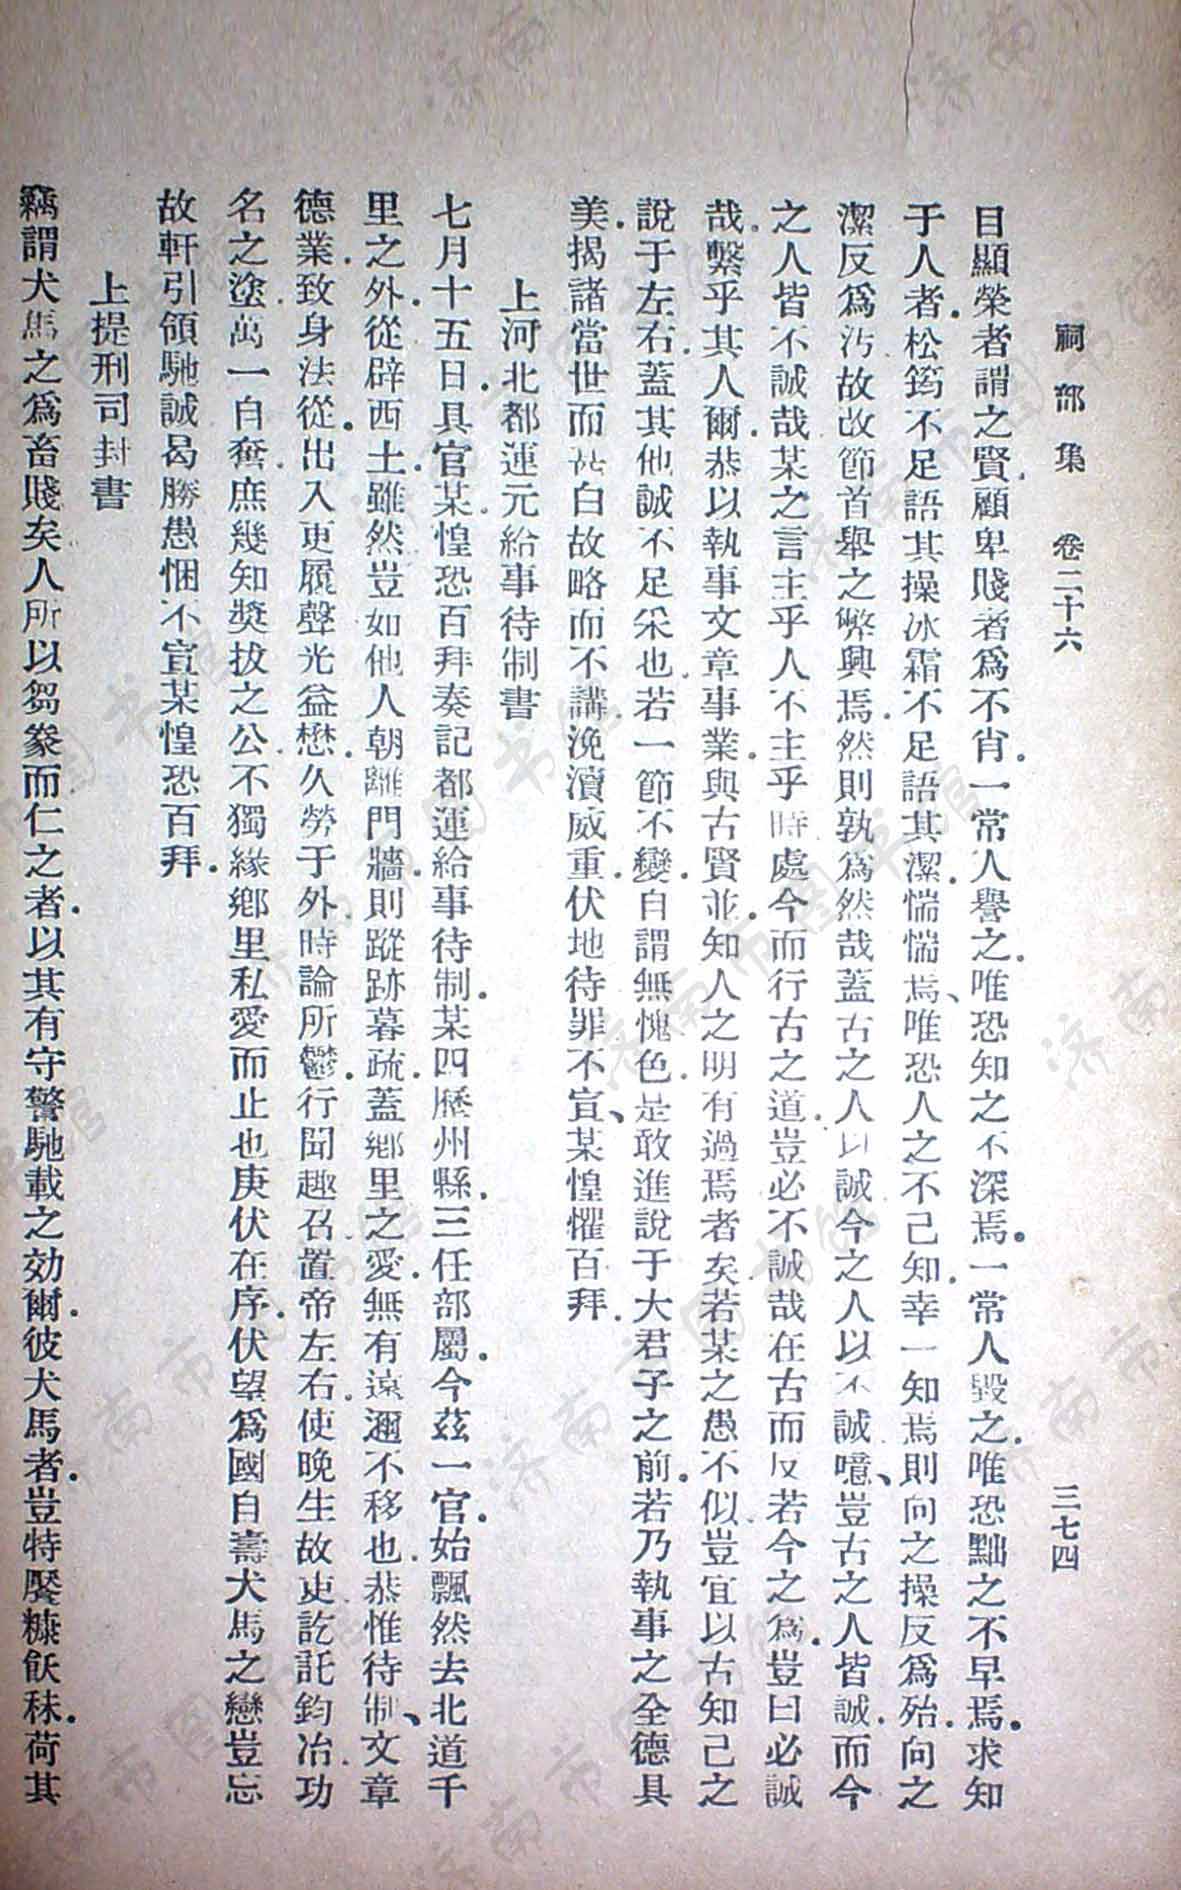 祠部集　卷二十六　三七四
目顯榮者謂之賢顧卑賤者爲不肖一常人譽之唯恐知之不深焉一常人毀之唯恐黜之不早焉求知
于人者松筠不足語其操冰霜不足語其潔惴惴焉唯恐人之不己知幸一知焉則向之操反爲殆向之
潔反爲汚故改節首舉之弊興焉然則孰爲然哉蓋古之人以誠今之人以不誠噫豈古之人皆誠而今
之人皆不誠哉某之言主乎人不主乎時處今而行古之道豈必不誠哉在古而反若今之爲豈曰必誠
哉繫乎其人爾恭以執事文章事業與古賢並知人之明有過焉者矣若某之愚不似豈宜以古知己之
說于左右蓋其他誠不足采也若一節不變自謂無愧色是敢進說于大君子之前若乃執事之全德具
美揭諸當世而甚白故略而不講浼瀆威重伏地待罪不宣某惶懼百拜
上河北都運元給事待制書
七月十五日具官某惶恐百拜奏記都運給事待制某四歷州縣三任部屬今茲一官始飄然去北道千
里之外從辟西土雖然豈如他人朝離門牆則蹤跡暮疏蓋鄉里之愛無有遠邇不移也恭惟待制文章
德業致身法從出入更履聲光益懋久勞于外時論所鬱行聞趣召置帝左右使晚生故吏訖託鈞冶功
名之塗萬一自奮庶幾知獎拔之公不獨緣鄉里私愛而止也庚伏在序伏望爲國自壽犬馬之戀豈忘
故軒引領馳誠曷勝愚悃不宣某惶恐百拜
上提刑司封書
竊謂犬馬之爲畜賤矣人所以芻豢而仁之者以其有守警馳載之効爾彼犬馬者豈特饜糠飫秣荷其